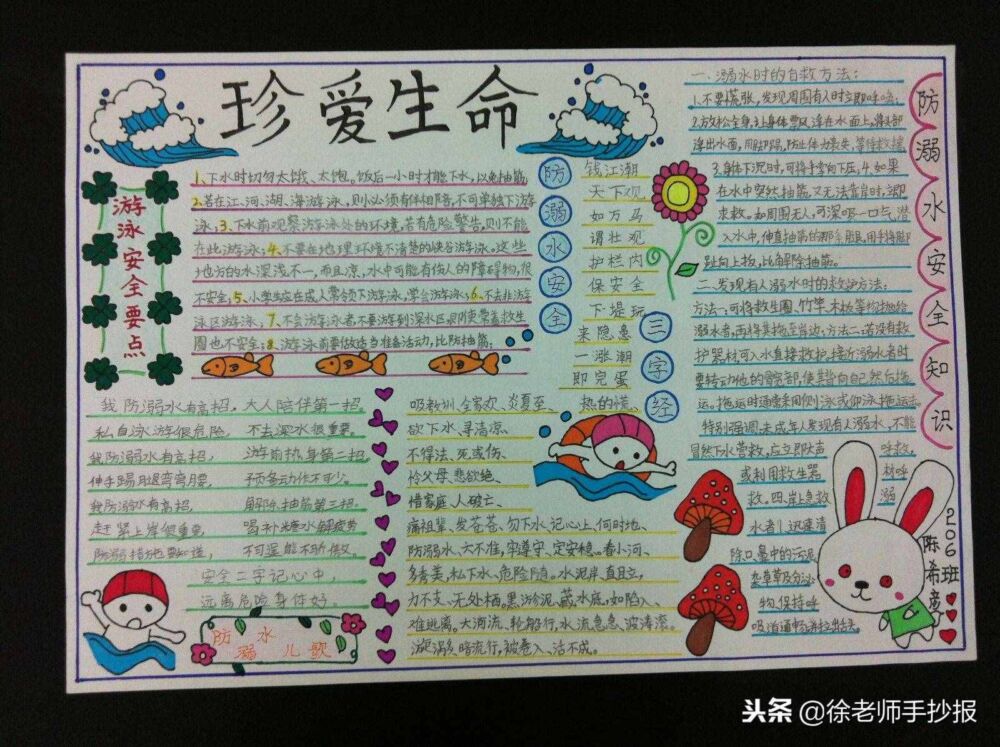 珍爱生命
游泳安全要点
1、下水时切勿太饿、太饱。饭后一小时才能下水，以免抽筋；
2、若在江、河、湖、海游泳，则必须有伴相陪，不可单独下游
泳；3、下水前观察游泳处的环境，若有危险警告，则不能
在此游泳；4、不要在地理环境不清楚的峡谷游泳。这些
地方的水深浅不一，而且凉，水中可能有伤人的障碍物，很
不安全；5、小学生应在成人带领下游泳，学会游泳；6、不去非游
泳区游泳；7、不会游泳者不要游到深水区，即使带着救生
圈也不安全；8、游泳前要做适当准备活动，比防抽筋；
防溺水安全
三字经
钱江潮
天下观
如万马
谓壮观
护栏内
保安全
下堤玩
来隐患
一涨潮
即完蛋
热的慌、
吸教训、全家欢、炎夏至、
欲下水、寻清凉、
不得法、死或伤、
怜父母、悲欲绝、
惜家庭、人破亡、
痛祖辈、发苍苍、勿下水、记心上、何时地、
防溺水、六不准，牢遵守、定安稳。春小河、
多秀美，私下水、危险随。水泥岸、直且立，
力不支、无处栖。黑淤泥、藏水底，如陷入、
难逃离。大河流、轮船行，水流急、波涛深。
漩涡多、暗流行，被卷入、活不成。
我防溺水有高招，大人陪伴第一招。
私自泳游很危险，不去深水很重要。
我防溺水有高招，游前热身第二招。
伸手踢腿弯弯腰，预备动作不可少。
我防溺水有高招，解除抽筋第三招。
赶紧上岸很重要，喝补糖水解疲劳
防溺措施要知道，不可逞能不骄傲。
安全二字记心中，
远离危险身体好。
防溺水儿歌
防溺水安全知识
一、溺水时的自救方法：
1.不要慌张，发现周围有人时立即呼喚；
2.放松全身，让身体飘浮在水面上，将头部
浮出水面，用脚踢，防止体力丧失，等待救援
3.身体下沉时，可将手掌向下压；4.如果
在水中突然抽筋，又无法靠岸时，立即
求救。如周围无人，可深吸一口气，潜
入水中，伸直抽筋的那条腿，用手将脚
趾向上扳，比解除抽筋。
二、发现有人溺水时的救护方法：
方法一：可将救生圈、竹竿、木板等物抛给
溺水者，再将其拖至岸边；方法二：若没有救
护器材，可入水直接救护。接近溺水者时
要转动他的髋部，使其背向自己然后拖
运。拖运时通常采用侧泳或仰泳拖运法
特别强调：未成年人发现有人溺水，不能
冒然下水营救，应立即大声呼救，
或利用救生器材呼
救。四、岸上急救溺
水者：1.迅速清
除口、鼻中的污泥、
杂草及分泌
物，保持呼
吸道通畅
206班
陈希
头条 @徐老师手抄报